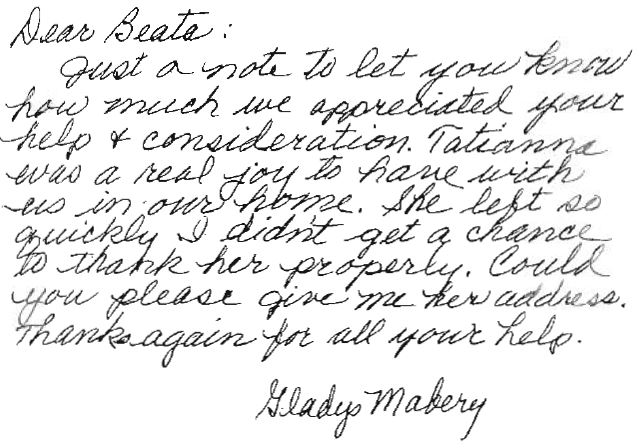 Dear Beata:
Just a note to let you know
how much we appreciated your
help & consideration. Tatianna
was a real joy to have with
us in our home. She left so
quickly I didn't get a chance
to thank her properly. Could
you please give me her address.
Thanks again for all your help.
Gladys Mabery